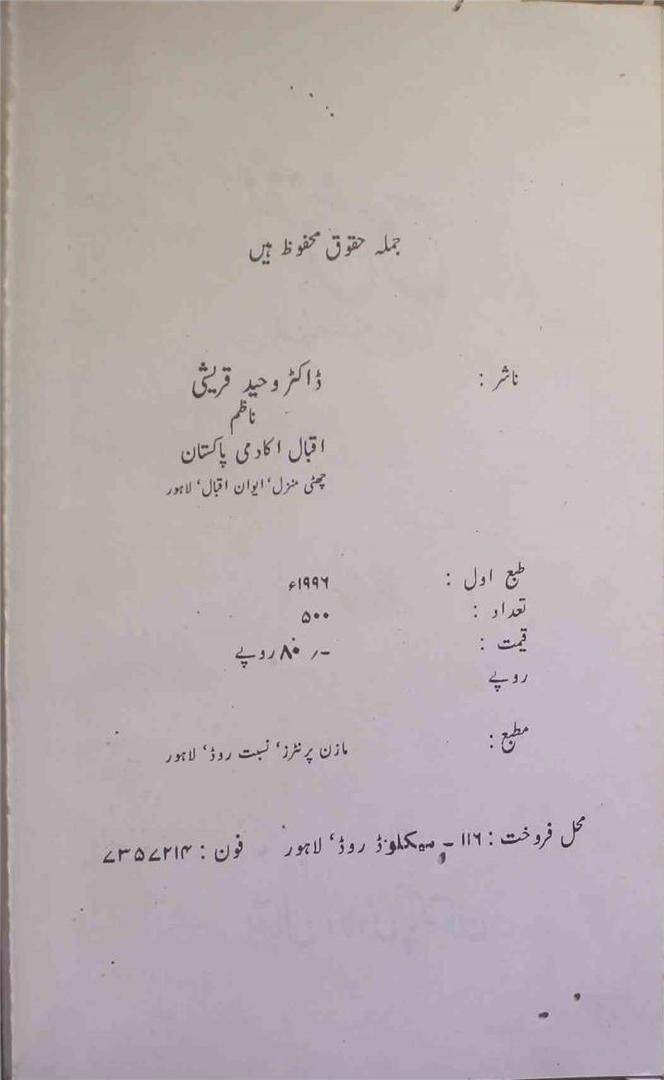 جملہ حقوق محفوظ ہیں
ناشر : ڈاکٹر وحید قریشی
ناظم
اقبال اکادمی پاکستان
چھٹی منزل‘ ایوان اقبال‘ لاہور
طبع اول : ۱۹۹۶ء
تعداد : ۵۰۰
قیمت : ۸۰/- روپے
روپے
مطبع : مازن پرنٹرز‘ نسبت روڈ‘ لاہور
محل فروخت : ۱۱۶ - میکلوڈ روڈ‘ لاہور فون : ۷۳۵۷۲۱۴